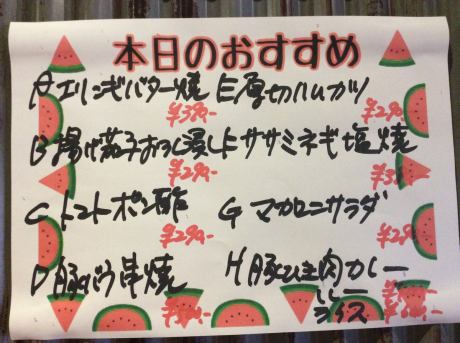 本日のおすすめ
A エリンギバター焼
¥390-
E 厚切ハムカツ
B 揚げ茄子おろし浸し
¥290-
F ササミネギ塩焼
C トマトポン酢
¥290-
G マカロニサラダ
D 豚バラ串焼
H 豚ひき肉カレー
ライス